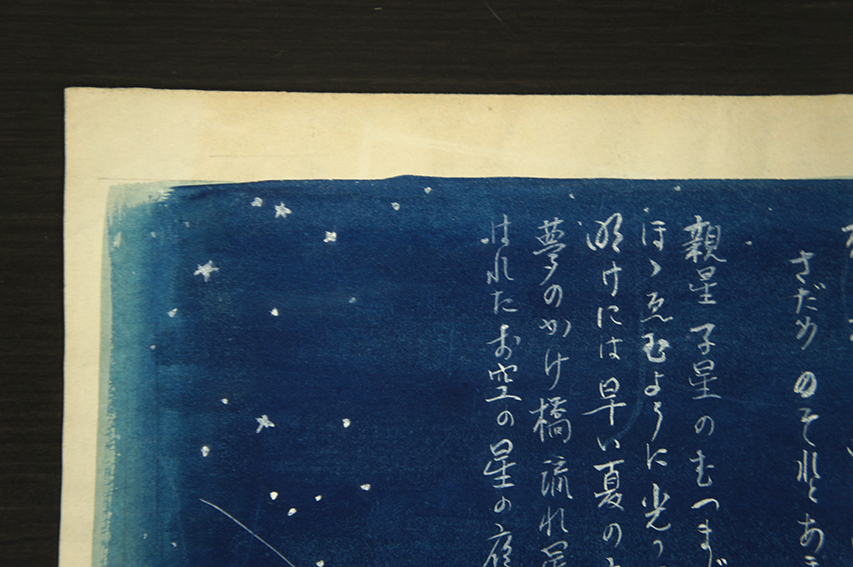 さだめのそれとあ
親星子星のむつまじ
ほゝゑむように光っ
明けには早い夏の
夢のかけ橋流れ星
はれたお空の星の